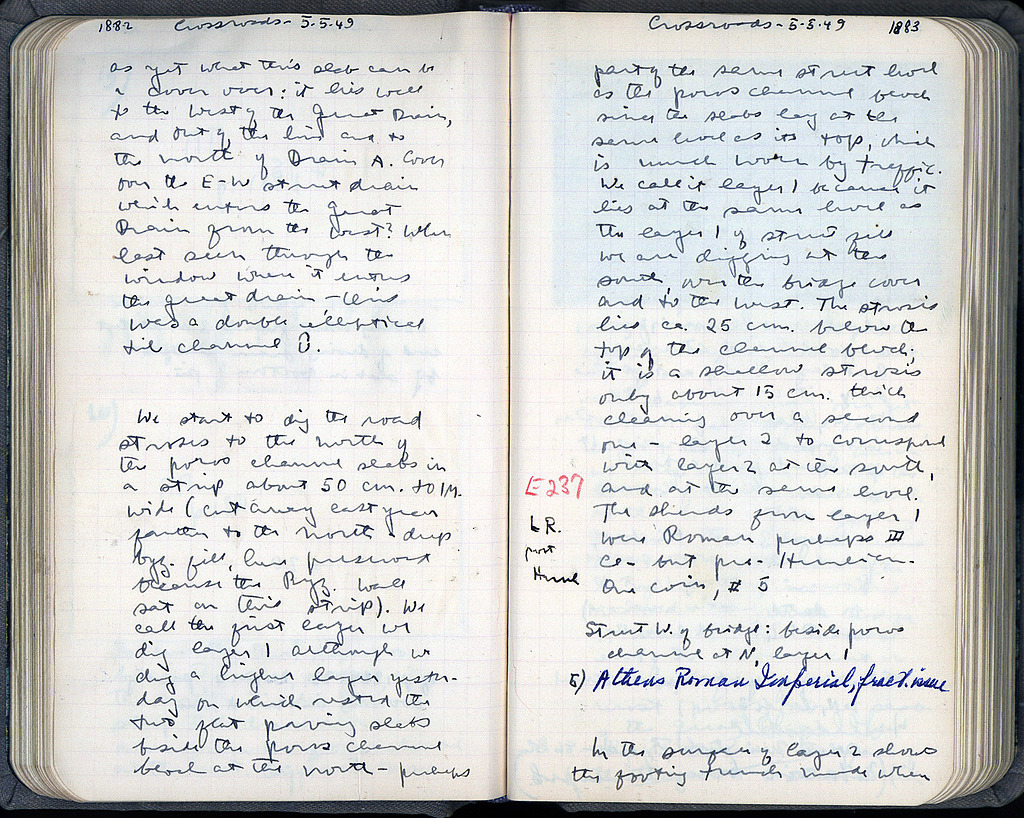 1882 Crossroads - 5.5.49
as yet what this slab can be
a cover over: it lies well
to the West of the Great Drain,
and out of the line and to
the north of Drain A. Cover
over the E-W street drain
which enters the Great
Drain from the West? When
last seen through the
window where it enters
the great drain - this
was a double elliptical
tile channel
We start to dig the road
stroses to the north of
the poros channel slabs in
a strip about 50 cm. to 1 m.
wide (cut away last year
farther to the north - deep
byz. fill, here preserved
because the Byz. wall
sat on this strip). We
call the first layer we
dig layer 1 although we
dug a higher layer yester-
day on which rested the
two flat paving slabs
beside the poros channel
block at the north - perhaps
Crossroads - 5-5-49 1883
part of the same street level
as the poros channel block
since the slabs lay at the
same level as its top, which
is much worn by traffic.
We call it layer 1 because it
lies at the same level as
the layer 1 of street fill
we are digging at the
south, over the bridge cover
and to the west. The strosis
lies ca. 25 cm. below the
top of the channel block;
it is a shallow strosis
only about 15 cm. thick
cleaning over a second
one - layer 2 to correspond
with layer 2 at the south,
and at the same level.
E 237
L.R.
post
Herul
The sherds from layer 1
were Roman perhaps III
ce. but pre-Herulian.
One coin, # 5
Street W. of bridge: beside poros
channel at N, layer 1
5) Athens Roman Imperial, fract. issue
In the surface of layer 2 shows
the footing trench made when